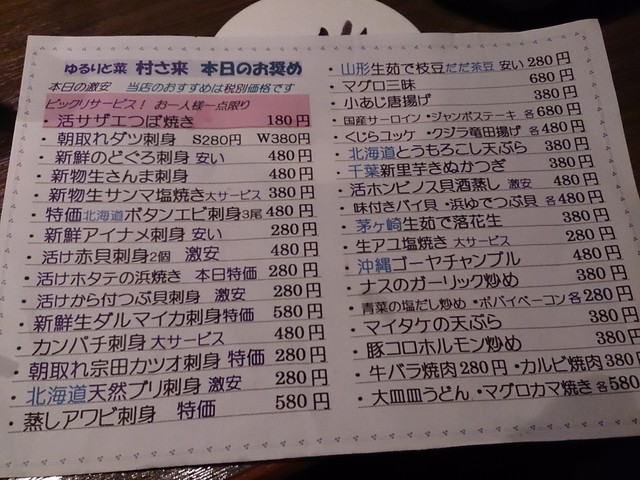 ゆるりと菜 村さ来 本日のお奨め
本日の激安 当店のおすすめは税別価格です
ビックリサービス! お一人様一点限り
・活サザエつぼ焼き 180円
・朝取れダツ刺身 S280円 W380円
・新鮮のどぐろ刺身 安い 480円
・新物生さんま刺身 480円
・新物生サンマ塩焼き大サービス 380円
・特価北海道ボタンエビ刺身3尾 480円
・新鮮アイナメ刺身 安い 280円
・活け赤貝刺身2個 激安 480円
・活けホタテの浜焼き 本日特価 280円
・活けから付つぶ貝刺身 激安 280円
・新鮮生ダルマイカ刺身特価 580円
・カンパチ刺身 大サービス 480円
・朝取れ宗田カツオ刺身 特価 280円
・北海道天然ブリ刺身 激安 280円
・蒸しアワビ刺身 特価 580円
・山形生茹で枝豆だだ茶豆 安い 280円
・マグロ三昧 680円
・小あじ唐揚げ 380円
・国産サーロイン・ジャンボステーキ 各680円
・くじらユッケ ・クジラ竜田揚げ 各480円
・北海道とうもろこし天ぷら 380円
・千葉新里芋きぬかつぎ 380円
・活ホンビノス貝酒蒸し 激安 480円
・味付きバイ貝 ・浜ゆでつぶ貝 各480円
・茅ヶ崎生茹で落花生 380円
・生アユ塩焼き 大サービス 280円
・沖縄ゴーヤチャンプル 480円
・ナスのガーリック炒め 380円
・青菜の塩だし炒め ・ポパイベーコン各280円
・マイタケの天ぷら 380円
・豚コロホルモン炒め 380円
・牛バラ焼肉280円 ・カルビ焼肉380円
・大皿皿うどん ・マグロカマ焼き 各580